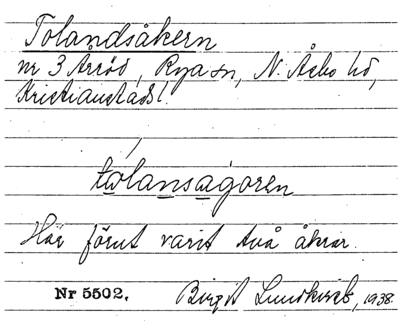 Tolandsåkern
nr 3 Arröd, Rya sn, N. Åsbo hd,
Kristianstads l.
tolansagoren
Här förut varit två åkrar.
Nr 5502. Birgit Lundkvist, 1938.